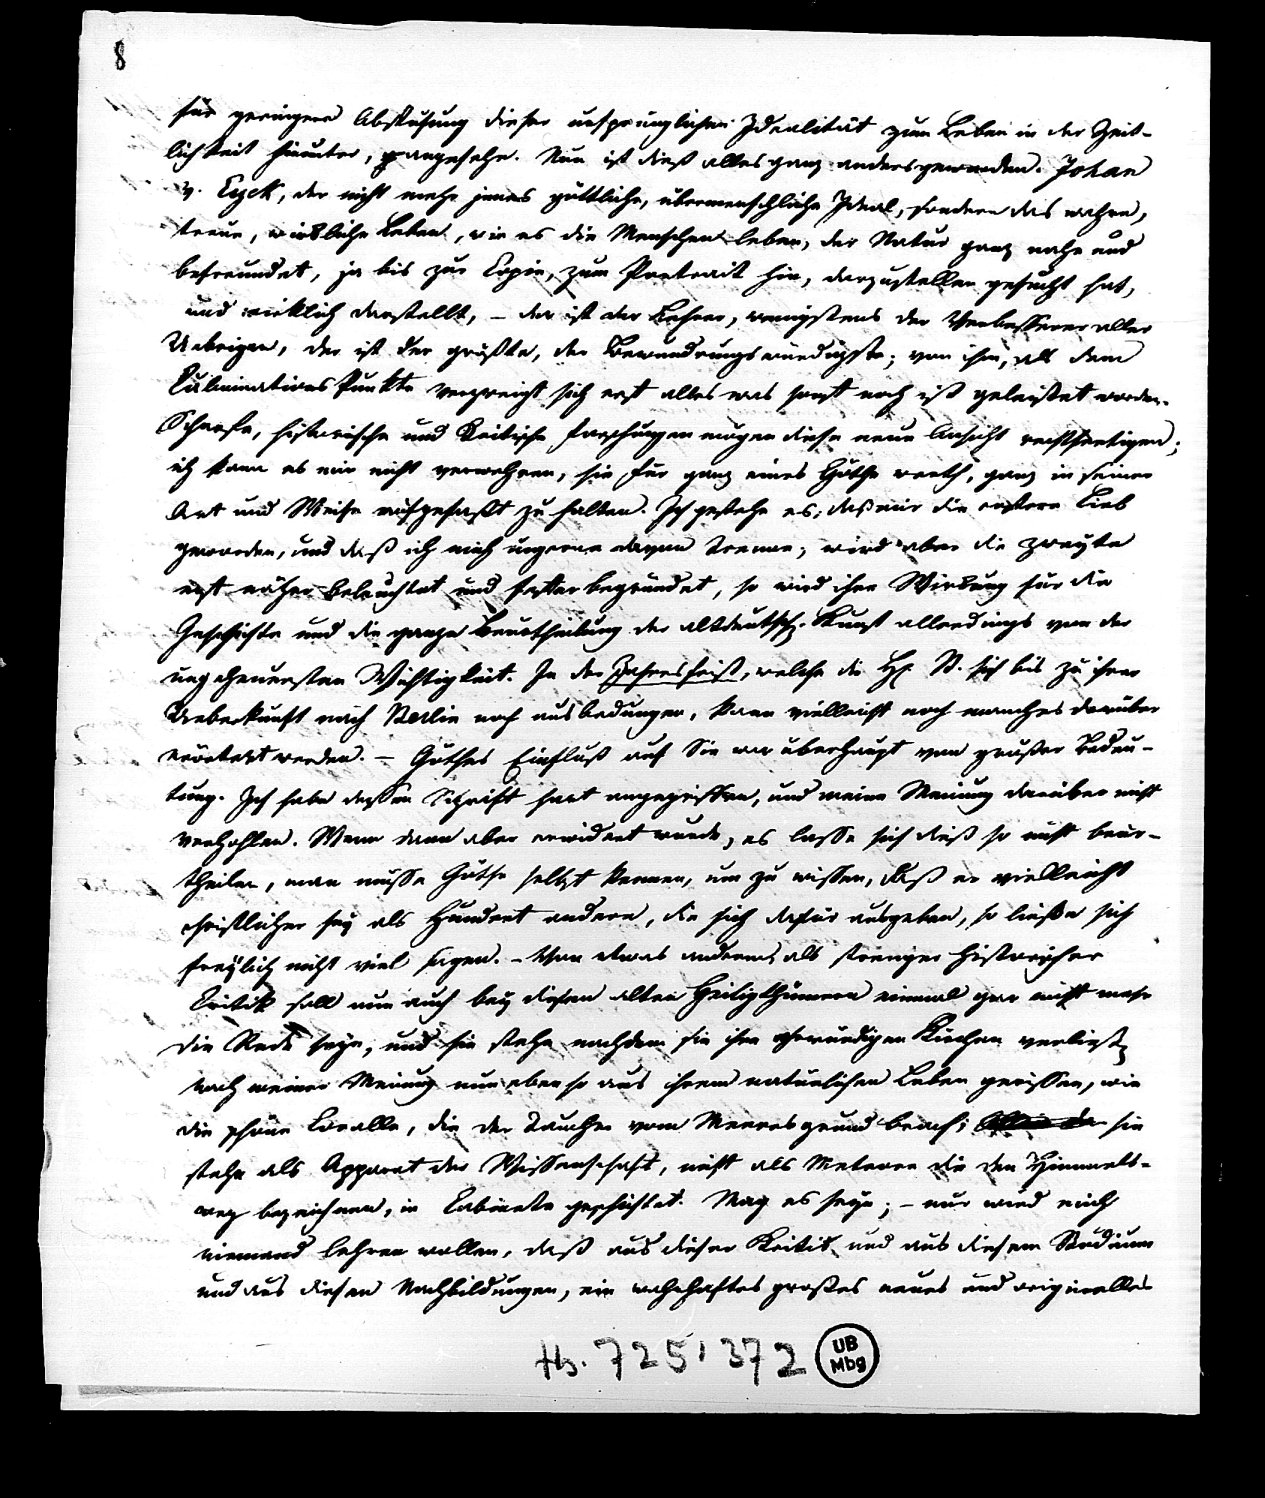 8
für geringere Abstufung dieser ursprünglichen Idealität zum Leben in der Zeit-
lichkeit hinunter, angesehn. Nun ist dieß alles ganz anders geworden. Johan
v. Eyck, der nicht mehr jenes göttliche, übermenschliche Ideal, sondern das wahre,
treue, wirkliche Leben, wie es die Menschen leben, der Natur ganz nahe und
befreundet, ja bis zur Copie, zum Portrait hin, darzustellen gesucht hat,
und wirklich darstellt, – der ist der Lehrer, wenigstens der Verbesserer aller
Uebrigen, der ist der größte, der Bewundrungswürdigste; von ihm, als dem
Culminations Punkte verzweigt sich erst alles was sonst noch ist geleistet worden.
Scharfe, historische und Kritische Forschungen mögen diese neue Ansicht rechtfertigen;
ich kann es mir nicht verwehren, sie für ganz eines Göthe werth, ganz in seiner
Art und Weise aufgefaßt zu halten. Ich gestehe es, daß mir die erstere Lieb
geworden, und daß ich mich ungerne davon Trenne, wird aber die zweyte
erst näher beleuchtet und fester begründet, so wird ihre Wirkung für die
Geschichte und die ganze Beurtheilung der altdeutsch. Kunst allerdings von der
ungeheuersten Wichtigkeit. In der Jahresfrist, welche die HH. B. sich bis zu ihrer
Ueberkunft nach Berlin noch ausbedungen, kann vielleicht noch manches darüber
erörtert werden. – Göthes Einfluß auf Sie war überhaupt von großer Bedeu-
tung. Ich habe dessen Schrift hart angegriffen, und meine Meinung darüber nicht
verhohlen. Wenn dann aber erwidert wurde, es lasse sich dieß so nicht beur-
theilen, man müsse Göthe selbst kennen, um zu wissen, daß er vielleicht
christlicher sey als Hundert andere, die sich dafür ausgeben, so ließe sich
freylich nicht viel sagen. – Von etwas anderem als strenger historischer
Critik soll nun auch bey diesen alten Heiligthümern einmal gar nicht mehr
die Rede seyn, und sie stehn nachdem sie ihre ehrwürdigen Kirchen verließen
nach meiner Meinung nun eben so aus ihrem natürlichen Leben gerissen, wie
die schöne Coralle, die der Taucher vom Meeresgrund brach; sie
stehn als Apparat der Wissenschaft, nicht als Meteore die den Himmels-
weg bezeichnen, in Cabinete geschichtet. Mag es seyn; – nur wird mich
niemand lehren wollen, daß aus dieser Kritik und aus diesem Studium
und aus diesen Nachbildungen, ein wahrhaftes großes neues und originelles
Hs. 725, 372
UB
Mbg